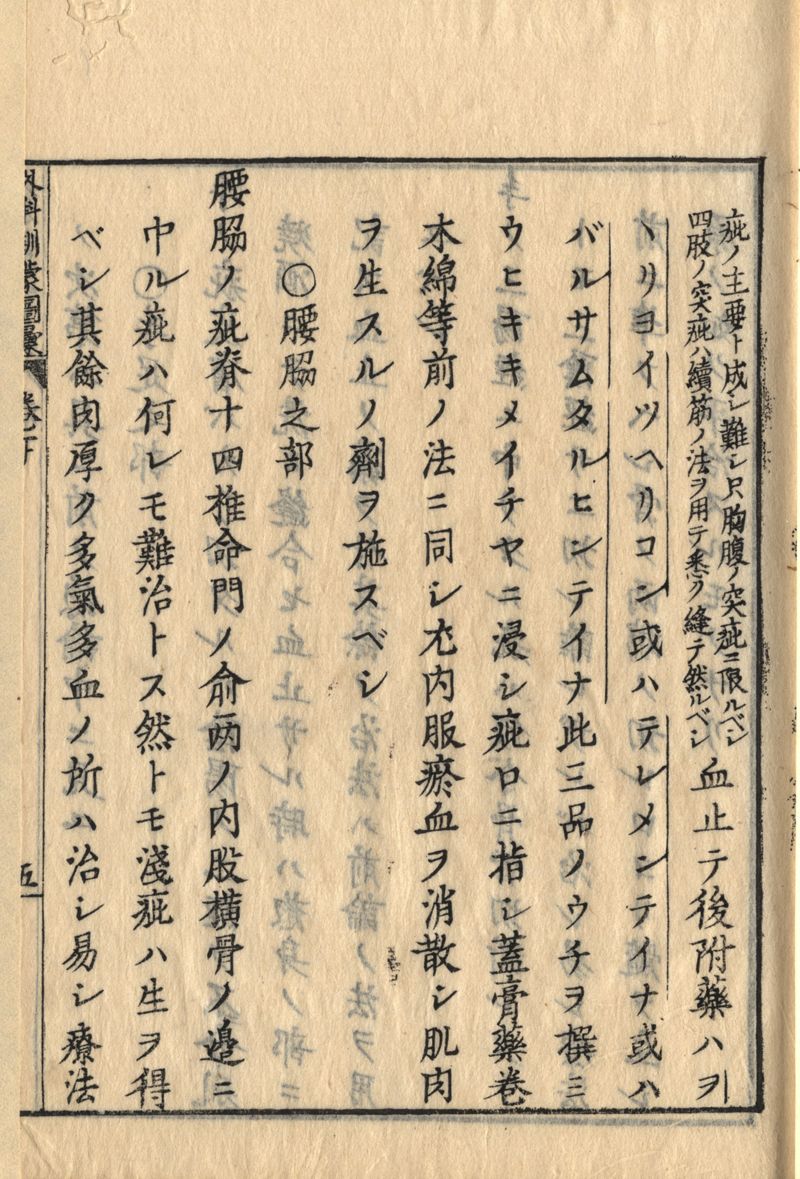 疵ノ主要ト成シ難シ只胸腹ノ突疵ニ限ルベシ
四肢ノ突疵ハ續筋ノ法ヲ用テ悉ク縫テ然ルベシ
血止テ後附藥ハヲ
ヽリヨイツヘリコン或ハテレメンテイナ或ハ
バルサムタルヒンテイナ此三品ノウチヲ撰ミ
ウヒキキメイチヤニ浸シ疵口ニ指シ蓋膏藥卷
木綿等前ノ法ニ同シ尤内服瘀血ヲ消散シ肌肉
ヲ生スルノ劑ヲ施スベシ
〇腰脇之部
腰脇ノ疵脊十四椎命門ノ俞両ノ内股横骨ノ邉ニ
中ル疵ハ何レモ難治トス然トモ淺疵ハ生ヲ得
ベシ其餘肉厚ク多氣多血ノ所ハ治シ易シ療法
外科訓蒙圖彙 卷下 五